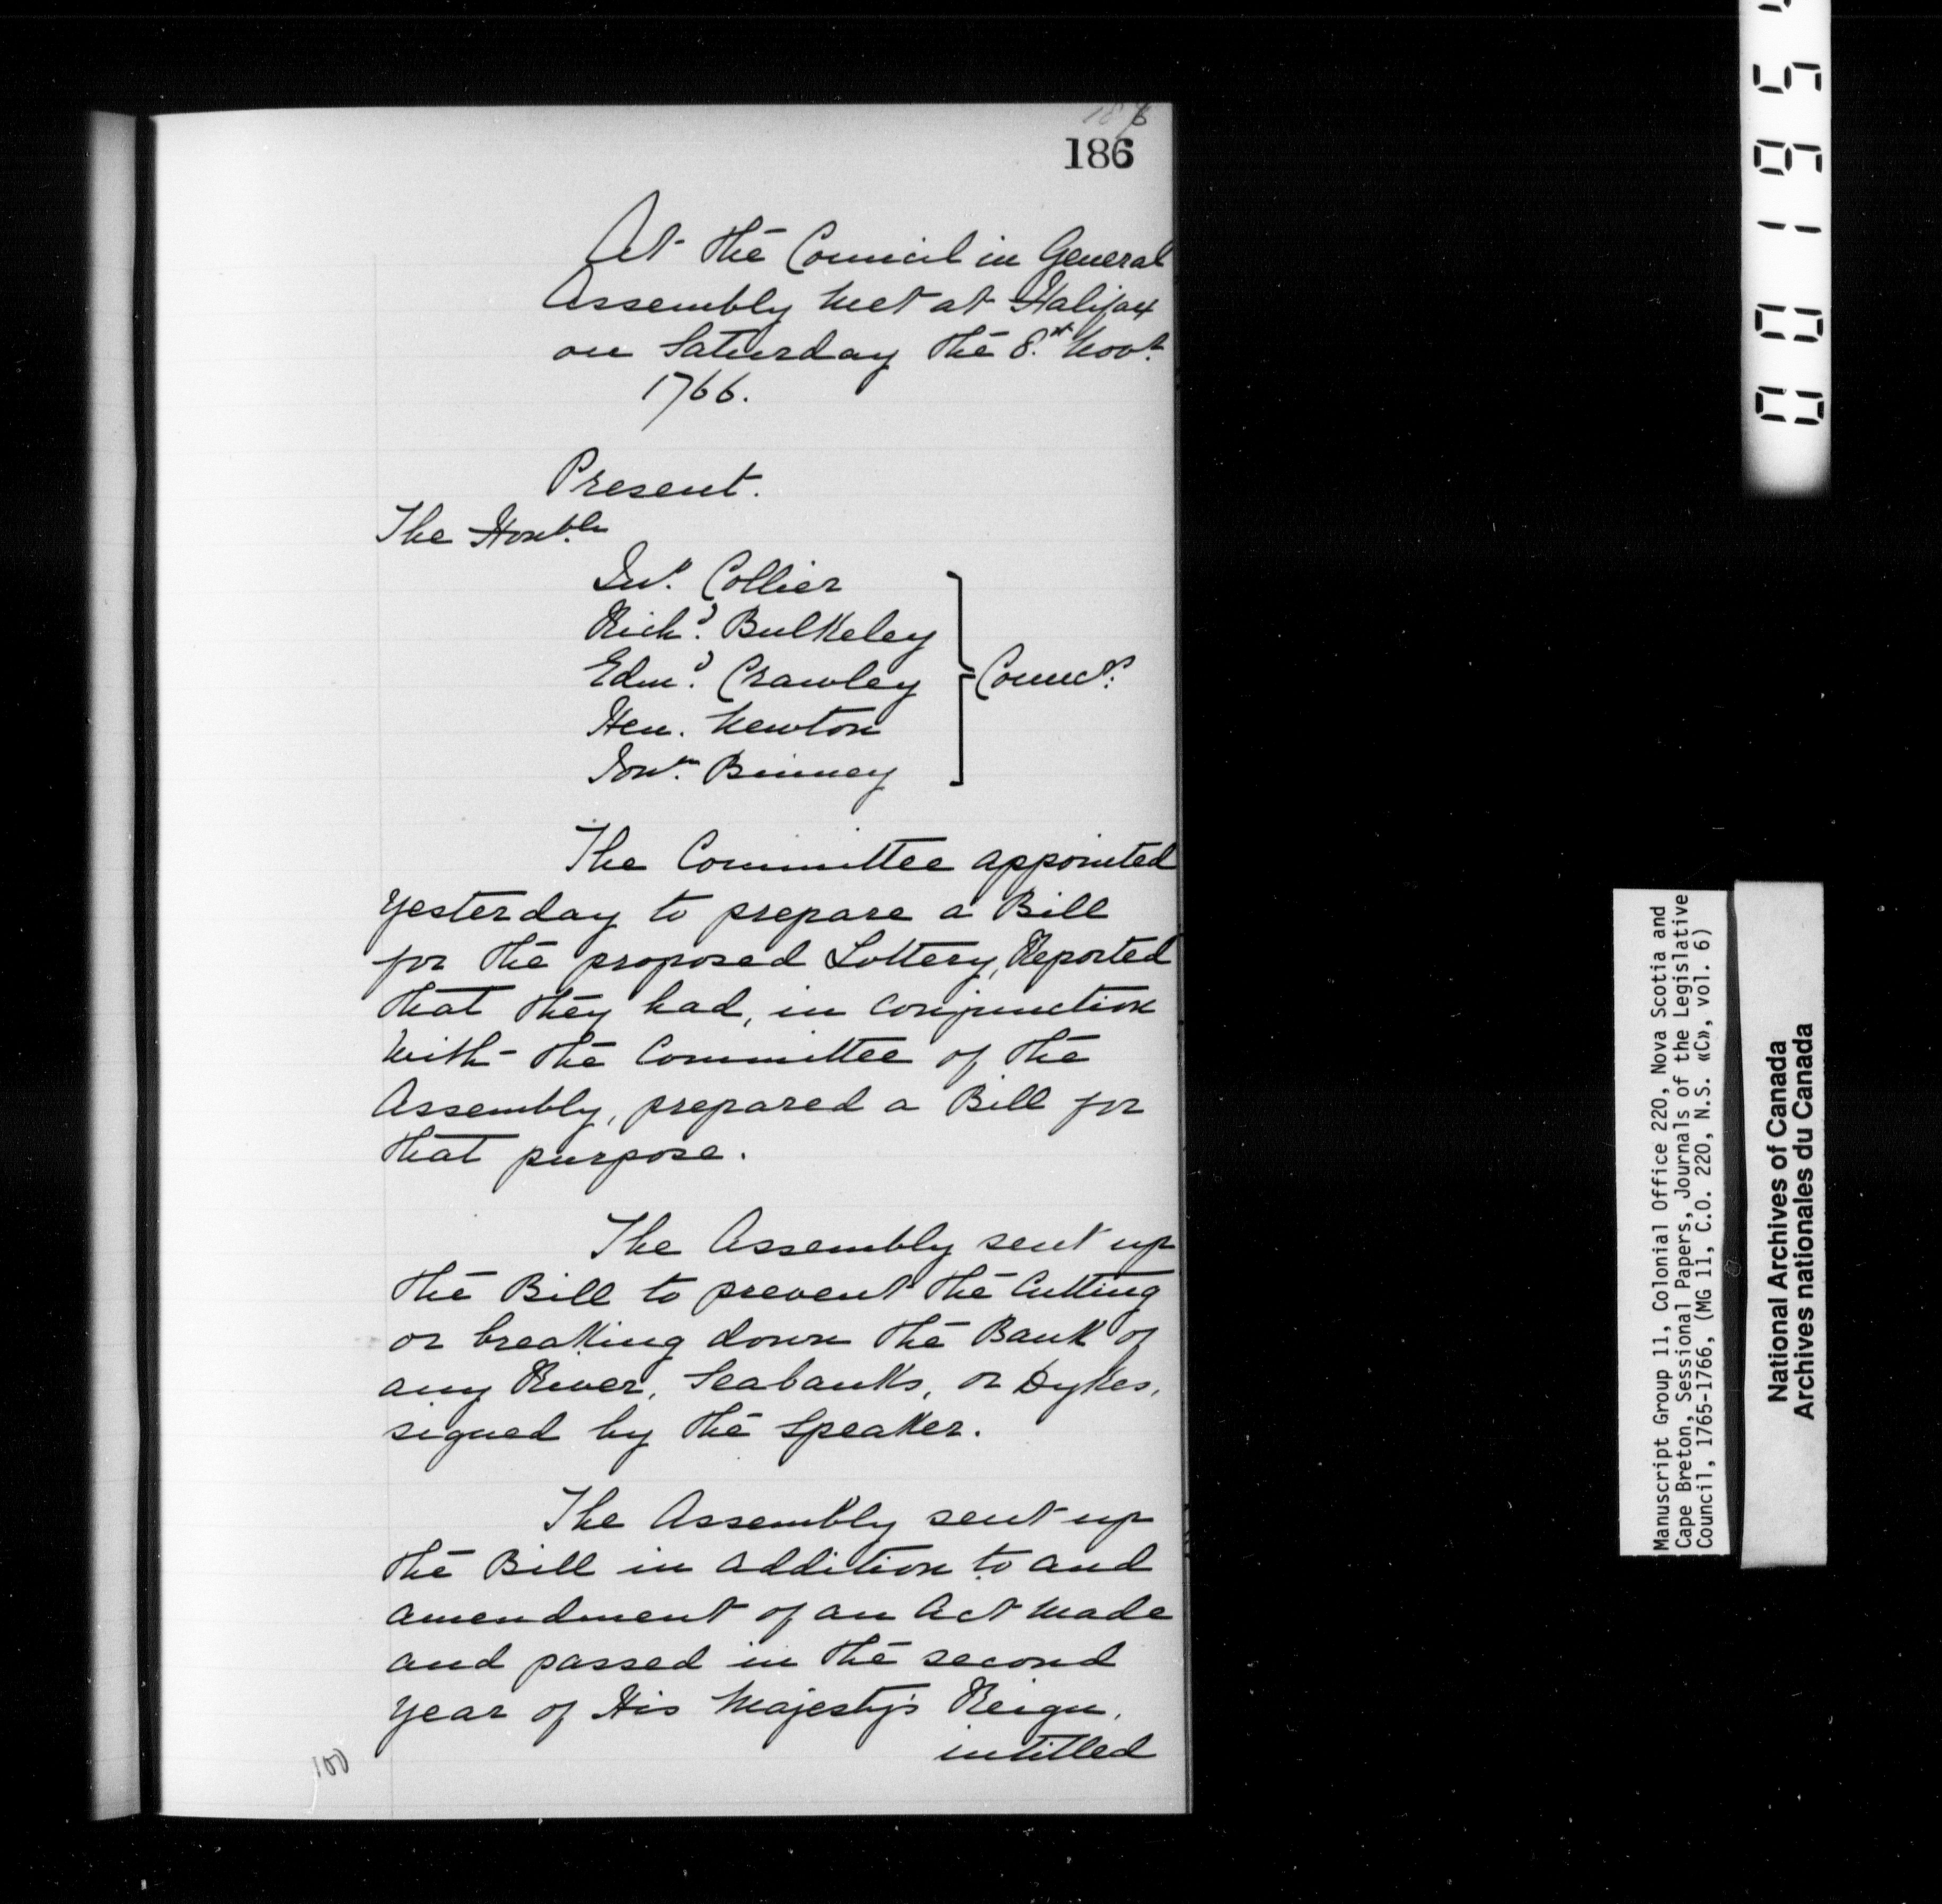 186
At the Council in General
Assembly met at Halifax
on Saturday the 8.th Novr.
1766.
Present.
The Honble.
Jno. Collier
Richd. Bulkeley
Edmd. Crawley
Hen. Newton
Jonn. Binney
Councrs.
The Committee appointed
yesterday to prepare a Bill
for the proposed Lottery, Reported
that they had, in conjunction
with the Committee of the
Assembly, prepared a Bill for
that purpose.
The Assembly sent up
the Bill to prevent the Cutting
or breaking down the Bank of
any River, Seabanks, or Dykes,
signed by the Speaker.
The Assembly sent up
the Bill in addition to and
amendment of an Act made
and passed in the second
year of His Majesty's Reign,
intitled
100
Manuscript Group 11, Colonial Office 220, Nova Scotia and
Cape Breton, Sessional Papers, Journals of the Legislative
Council, 1765-1766, (MG 11, C.O. 220, N.S. «C», vol. 6)
National Archives of Canada
Archives nationales du Canada